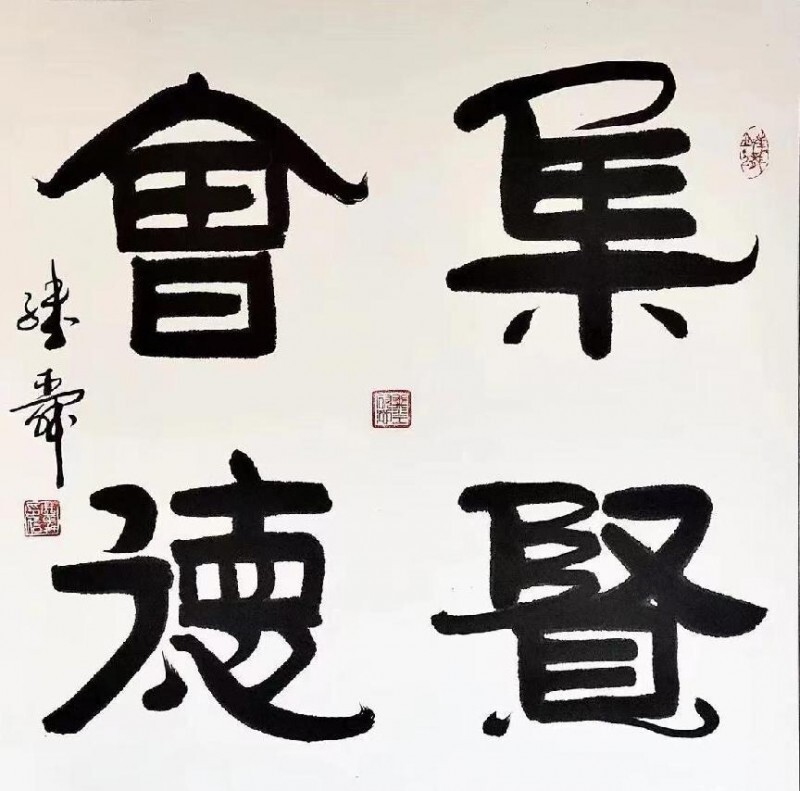 集賢
會德